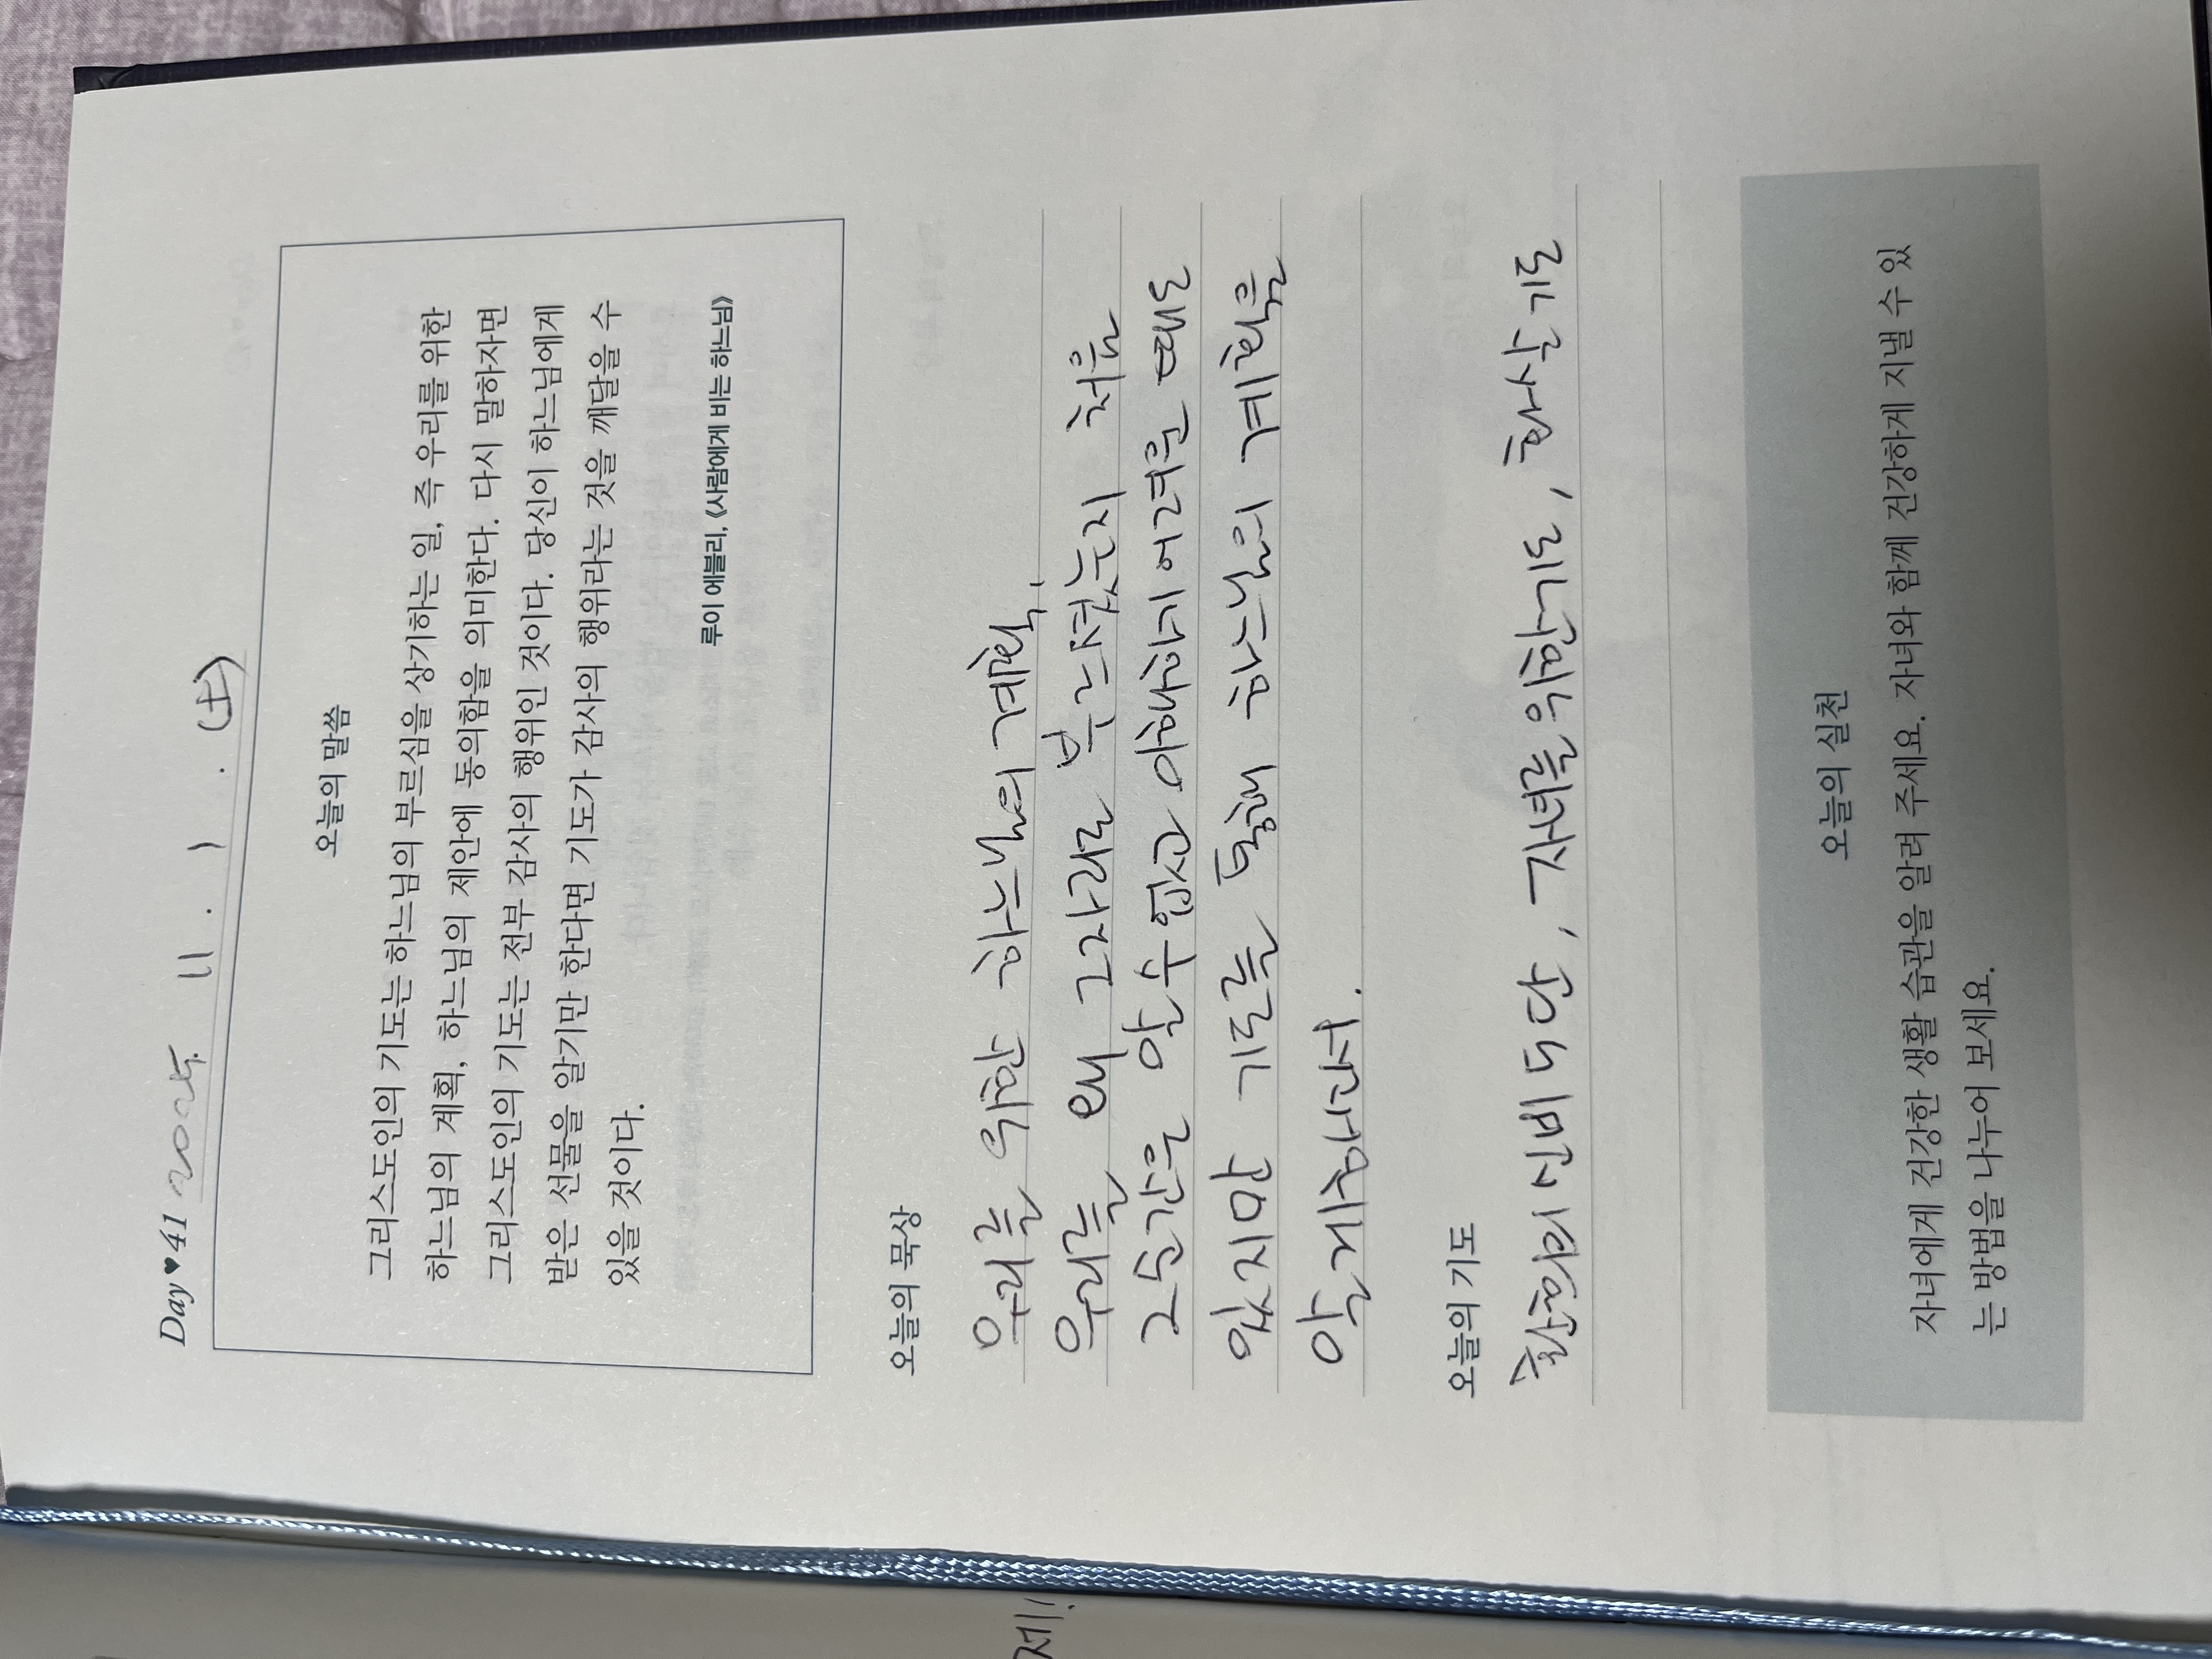 Day♥41 2025. 11. 1. (土)
오늘의 말씀
그리스도인의 기도는 하느님의 부르심을 상기하는 일, 즉 우리를 위한
하느님의 계획, 하느님의 제안에 동의함을 의미한다. 다시 말하자면
그리스도인의 기도는 전부 감사의 행위인 것이다. 당신이 하느님에게
받은 선물을 알기만 한다면 기도가 감사의 행위라는 것을 깨달을 수
있을 것이다.
루이 에블리, 《사람에게 비는 하느님》
오늘의 묵상
우리를 위한 하느님의 계획.
우리를 왜 그자리로 부르셨는지 처음
그순간은 알 수 없고 이해하기 어려운 때도
있지만 기도를 통해 하느님의 계획을
알게하시고서.
오늘의 기도
환희의 신비 5단, 자녀를위한기도, 화살기도
오늘의 실천
자녀에게 건강한 생활 습관을 알려 주세요. 자녀와 함께 건강하게 지낼 수 있
는 방법을 나누어 보세요.
제!